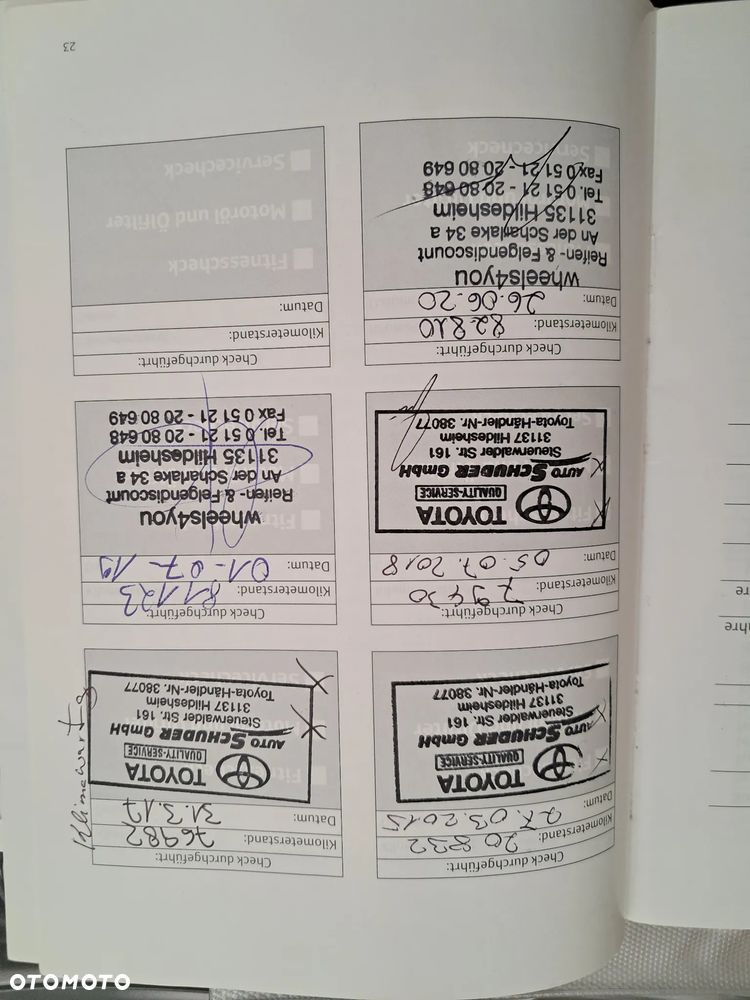 Check durchgeführt:
Kilometerstand:
Datum: .03.2015
TOYOTA
QUALITY-SERVICE
AUTO SCHUDER GmbH
Steuerwalder Str. 161
31137 Hildesheim
Toyota-Händler-Nr. 38077
Check durchgeführt:
Kilometerstand: 76982
Datum: 31.3.17
TOYOTA
QUALITY-SERVICE
AUTO SCHUDER GmbH
Steuerwalder Str. 161
31137 Hildesheim
Toyota-Händler-Nr. 38077
Klimawartg
Check durchgeführt:
Kilometerstand: 79430
Datum: 05.07.2018
TOYOTA
QUALITY-SERVICE
AUTO SCHUDER GmbH
Steuerwalder Str. 161
31137 Hildesheim
Toyota-Händler-Nr. 38077
Check durchgeführt:
Kilometerstand: 81123
Datum: 01-07-19
wheels4you
Reifen- & Felgendiscount
An der Scharlake 34 a
31135 Hildesheim
Tel. 0 51 21 - 20 80 648
Fax 0 51 21 - 20 80 649
Check durchgeführt:
Kilometerstand: 82810
Datum: 26.06.20
wheels4you
Reifen- & Felgendiscount
An der Scharlake 34 a
31135 Hildesheim
Tel. 0 51 21 - 20 80 648
Fax 0 51 21 - 20 80 649
Servicecheck
Check durchgeführt:
Kilometerstand:
Datum:
Fitnesscheck
Motoröl und Ölfilter
Servicecheck
23
OTOMOTO